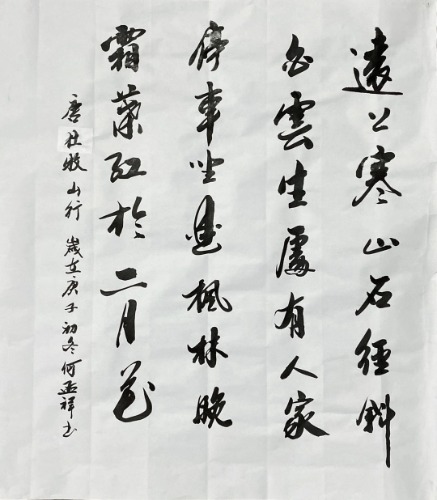 遠上寒山石徑斜
白雲生處有人家
停車坐愛楓林晚
霜葉紅於二月花
唐杜牧山行 歲在庚子初冬何孟祥书